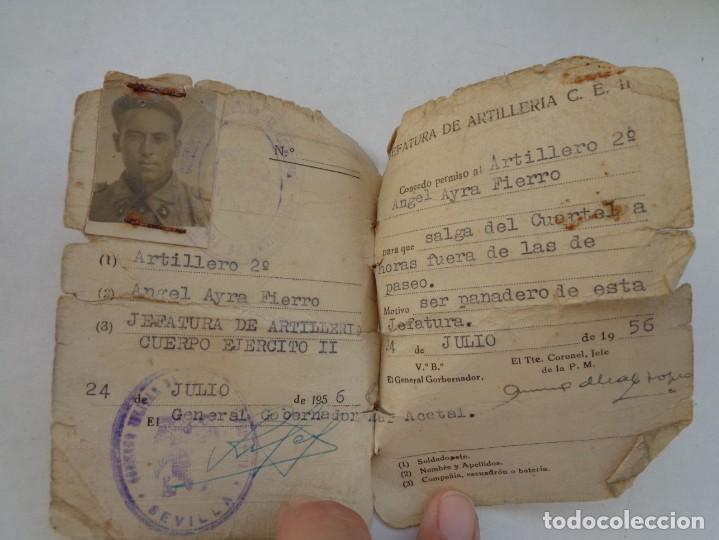 N.º
(1) Artillero 2º
(2) Angel Ayra Fierro
(3) JEFATURA DE ARTILLERI
CUERPO EJERCITO II
24 de JULIO de 1956
El General Gobernador
SEVILLA
JEFATURA DE ARTILLERIA C. E. II
Concedo permiso al Artillero 2º
Angel Ayra Fierro
para que salga del Cuartel a
horas fuera de las de
paseo.
Motivo ser panadero de esta
Jefatura.
24 de JULIO de 1956
V.º B.º
El General Gorbernador,
El Tte. Coronel, Jefe
de la P. M.
Acctal.
(1) Soldado,
(2) Nombre y Apellidos.
(3) Compañía, escuadrón o batería.
todocoleccion
todocoleccion.net